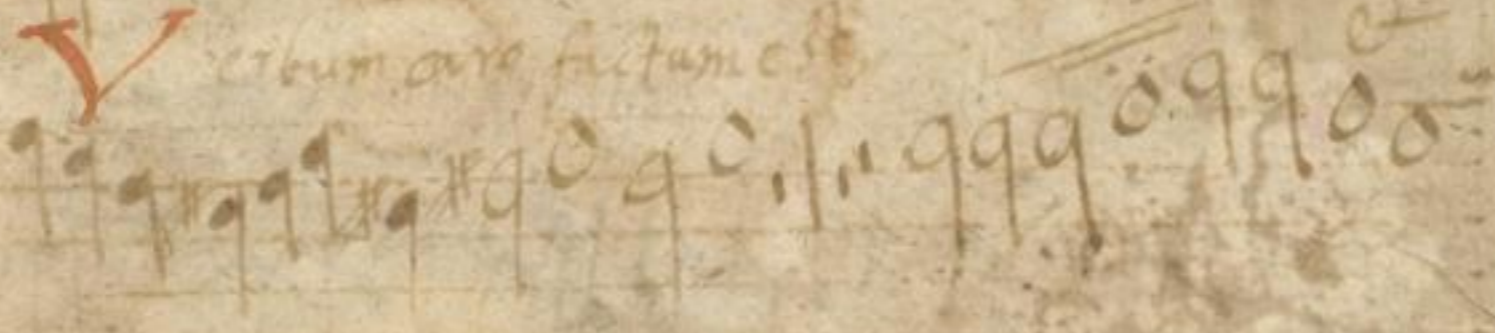 Verbum caro factum est et